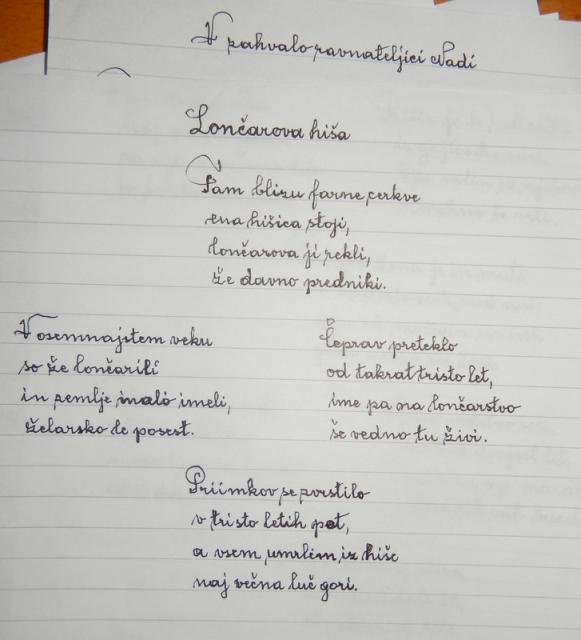 V pahvalo ravnateljici Nadi
Lončarova hiša
Tam blizu farne cerkve
ena hišica stoji,
lončarova ji rekli,
že davno predniki.
V osemnajstem veku
so že lončarili
in zemlje malo imeli,
želarsko le posest.
Čeprav preteklo
od takrat tristo let,
ime pa na lončarstvo
še vedno tu živi.
Priimkov se zvrstilo
v tristo letih pet,
a vsem umrlim iz hiše
naj večna luč gori.